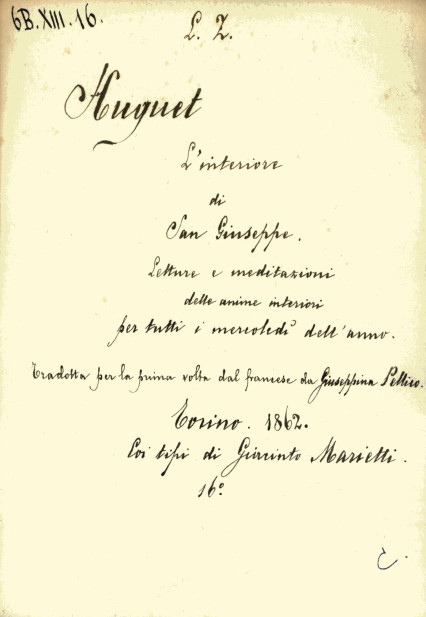 6B.XIII.16.
L. Z.
Huguet
L'interiore
di
San Giuseppe.
Letture e meditazioni
delle anime interiori
per tutti i mercoledì dell'anno.
Tradotta per la prima volta dal francese da Giuseppina Pellico.
Torino. 1862.
Coi tipi di Giacinto Marietti.
16º